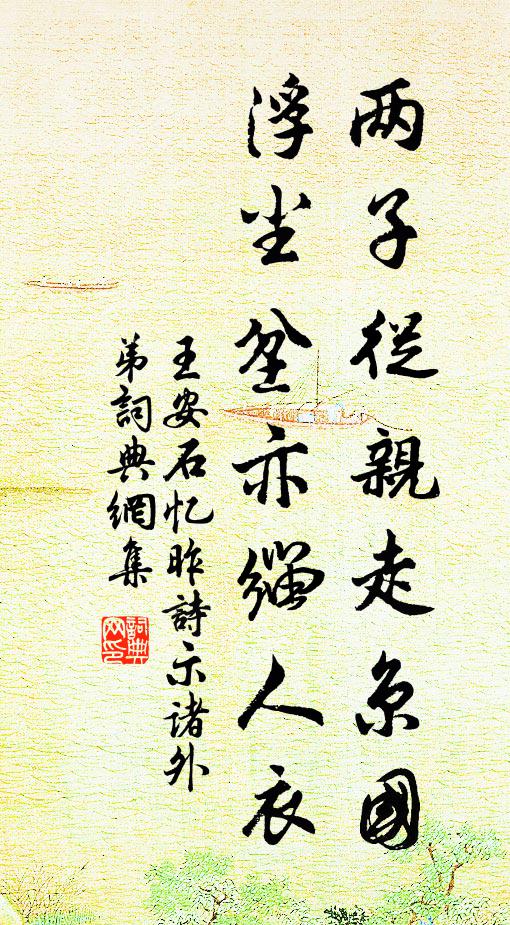 两子從親走京國
浮尘坌亦緇人衣
王安石忆昨詩示诸外
弟詞典網集
詞典网印